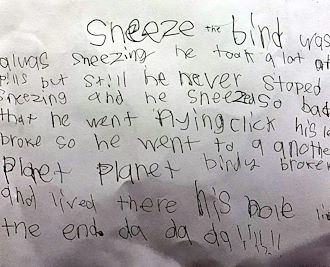 Sneeze the bird was
alwas sneezing he took a lot of
pills but still he never stoped
sneezing and he sneezed so bad
that he went flying click his
broke so he went to a another
Planet Planet birdy broken
and lived there his hole li
the end. da da da !!!!!